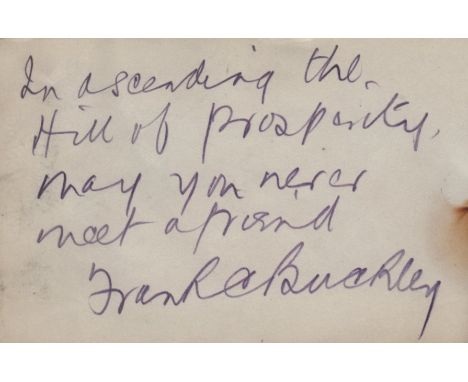 In ascending the
Hill of prosperity,
may you never
meet a friend
Frank C Buckley